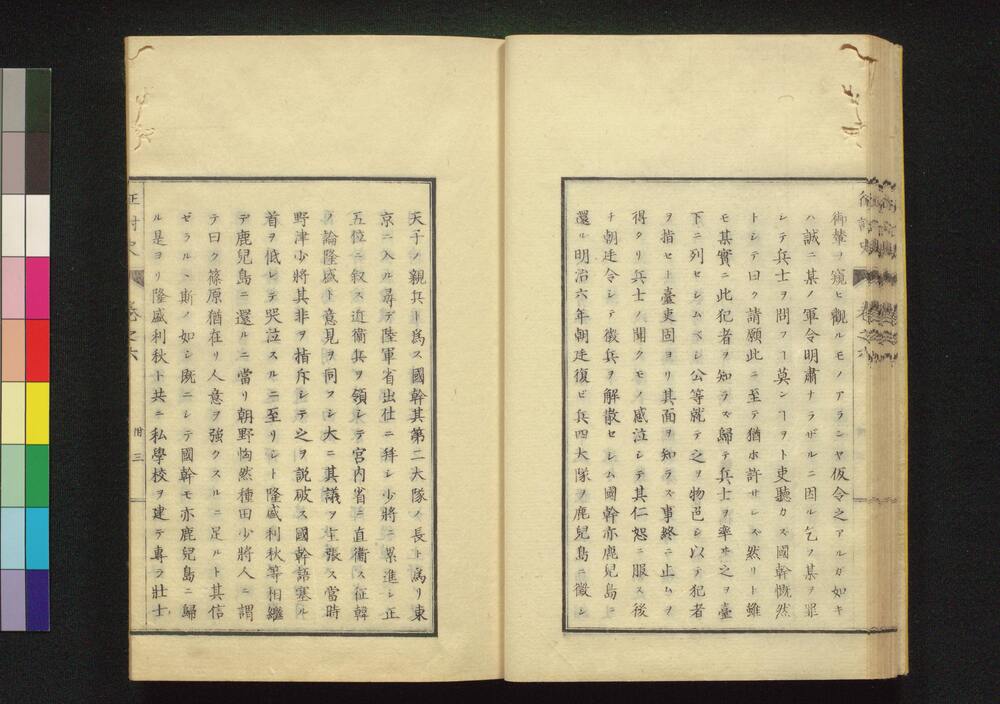 御輦ヲ窺ヒ觀ルモノアランヤ仮令之アルガ如キ
ハ誠ニ某ノ軍令明肅ナラザルニ因ル乞フ某ヲ罪
シテ兵士ヲ問フヿ莫ンヿヲト吏聽カス國幹慨然
トシテ曰ク請願此ニ至テ猶ホ許サレス然リト雖
モ其實ニ此犯者ヲ知ラス歸テ兵士ヲ率ヰ之ヲ臺
下ニ列セシムベシ公等就テ之ヲ物色シ以テ犯者
ヲ指セト臺吏固ヨリ其面ヲ知ラス事終ニ止ムヲ
得タリ兵士ノ聞クモノ感泣シテ其仁恕ニ服ス後
チ朝廷令シテ徴兵ヲ解散セシム國幹亦鹿兒島ニ
還ル明治六年朝廷復ビ兵四大隊ヲ鹿兒島ニ徴シ
天子ノ親兵ト為ス國幹其第二大隊ノ長ト為リ東
京ニ入ル尋デ陸軍省出仕ニ拜シ少將ニ累進シ正
五位ニ叙ス近衞兵ヲ領シテ宮内省ニ直衞ス征韓
ノ論隆盛ト意見ヲ同フシ大ニ其議ヲ主張ス當時
野津少將其非ヲ指斥シテ之ヲ説破ス國幹語塞ル
首ヲ低レテ哭泣スルニ至リシト隆盛利秋等相繼
デ鹿兒島ニ還ルニ當リ朝野恟然種田少將人ニ謂
テ曰ク篠原猶在リ人意ヲ強クスルニ足ルト其信
ゼラルヽ斯ノ如シ既ニシテ國幹モ亦鹿兒島ニ歸
ル是ヨリ隆盛利秋ト共ニ私學校ヲ建テ専ラ壯士
征討史
卷之六
附三